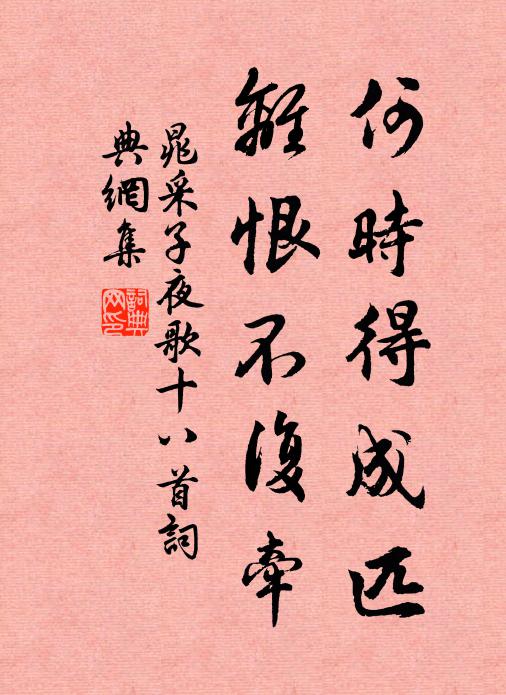 何時得成匹
離恨不復牽
晁采子夜歌十八首詞
典網集
詞典
网印